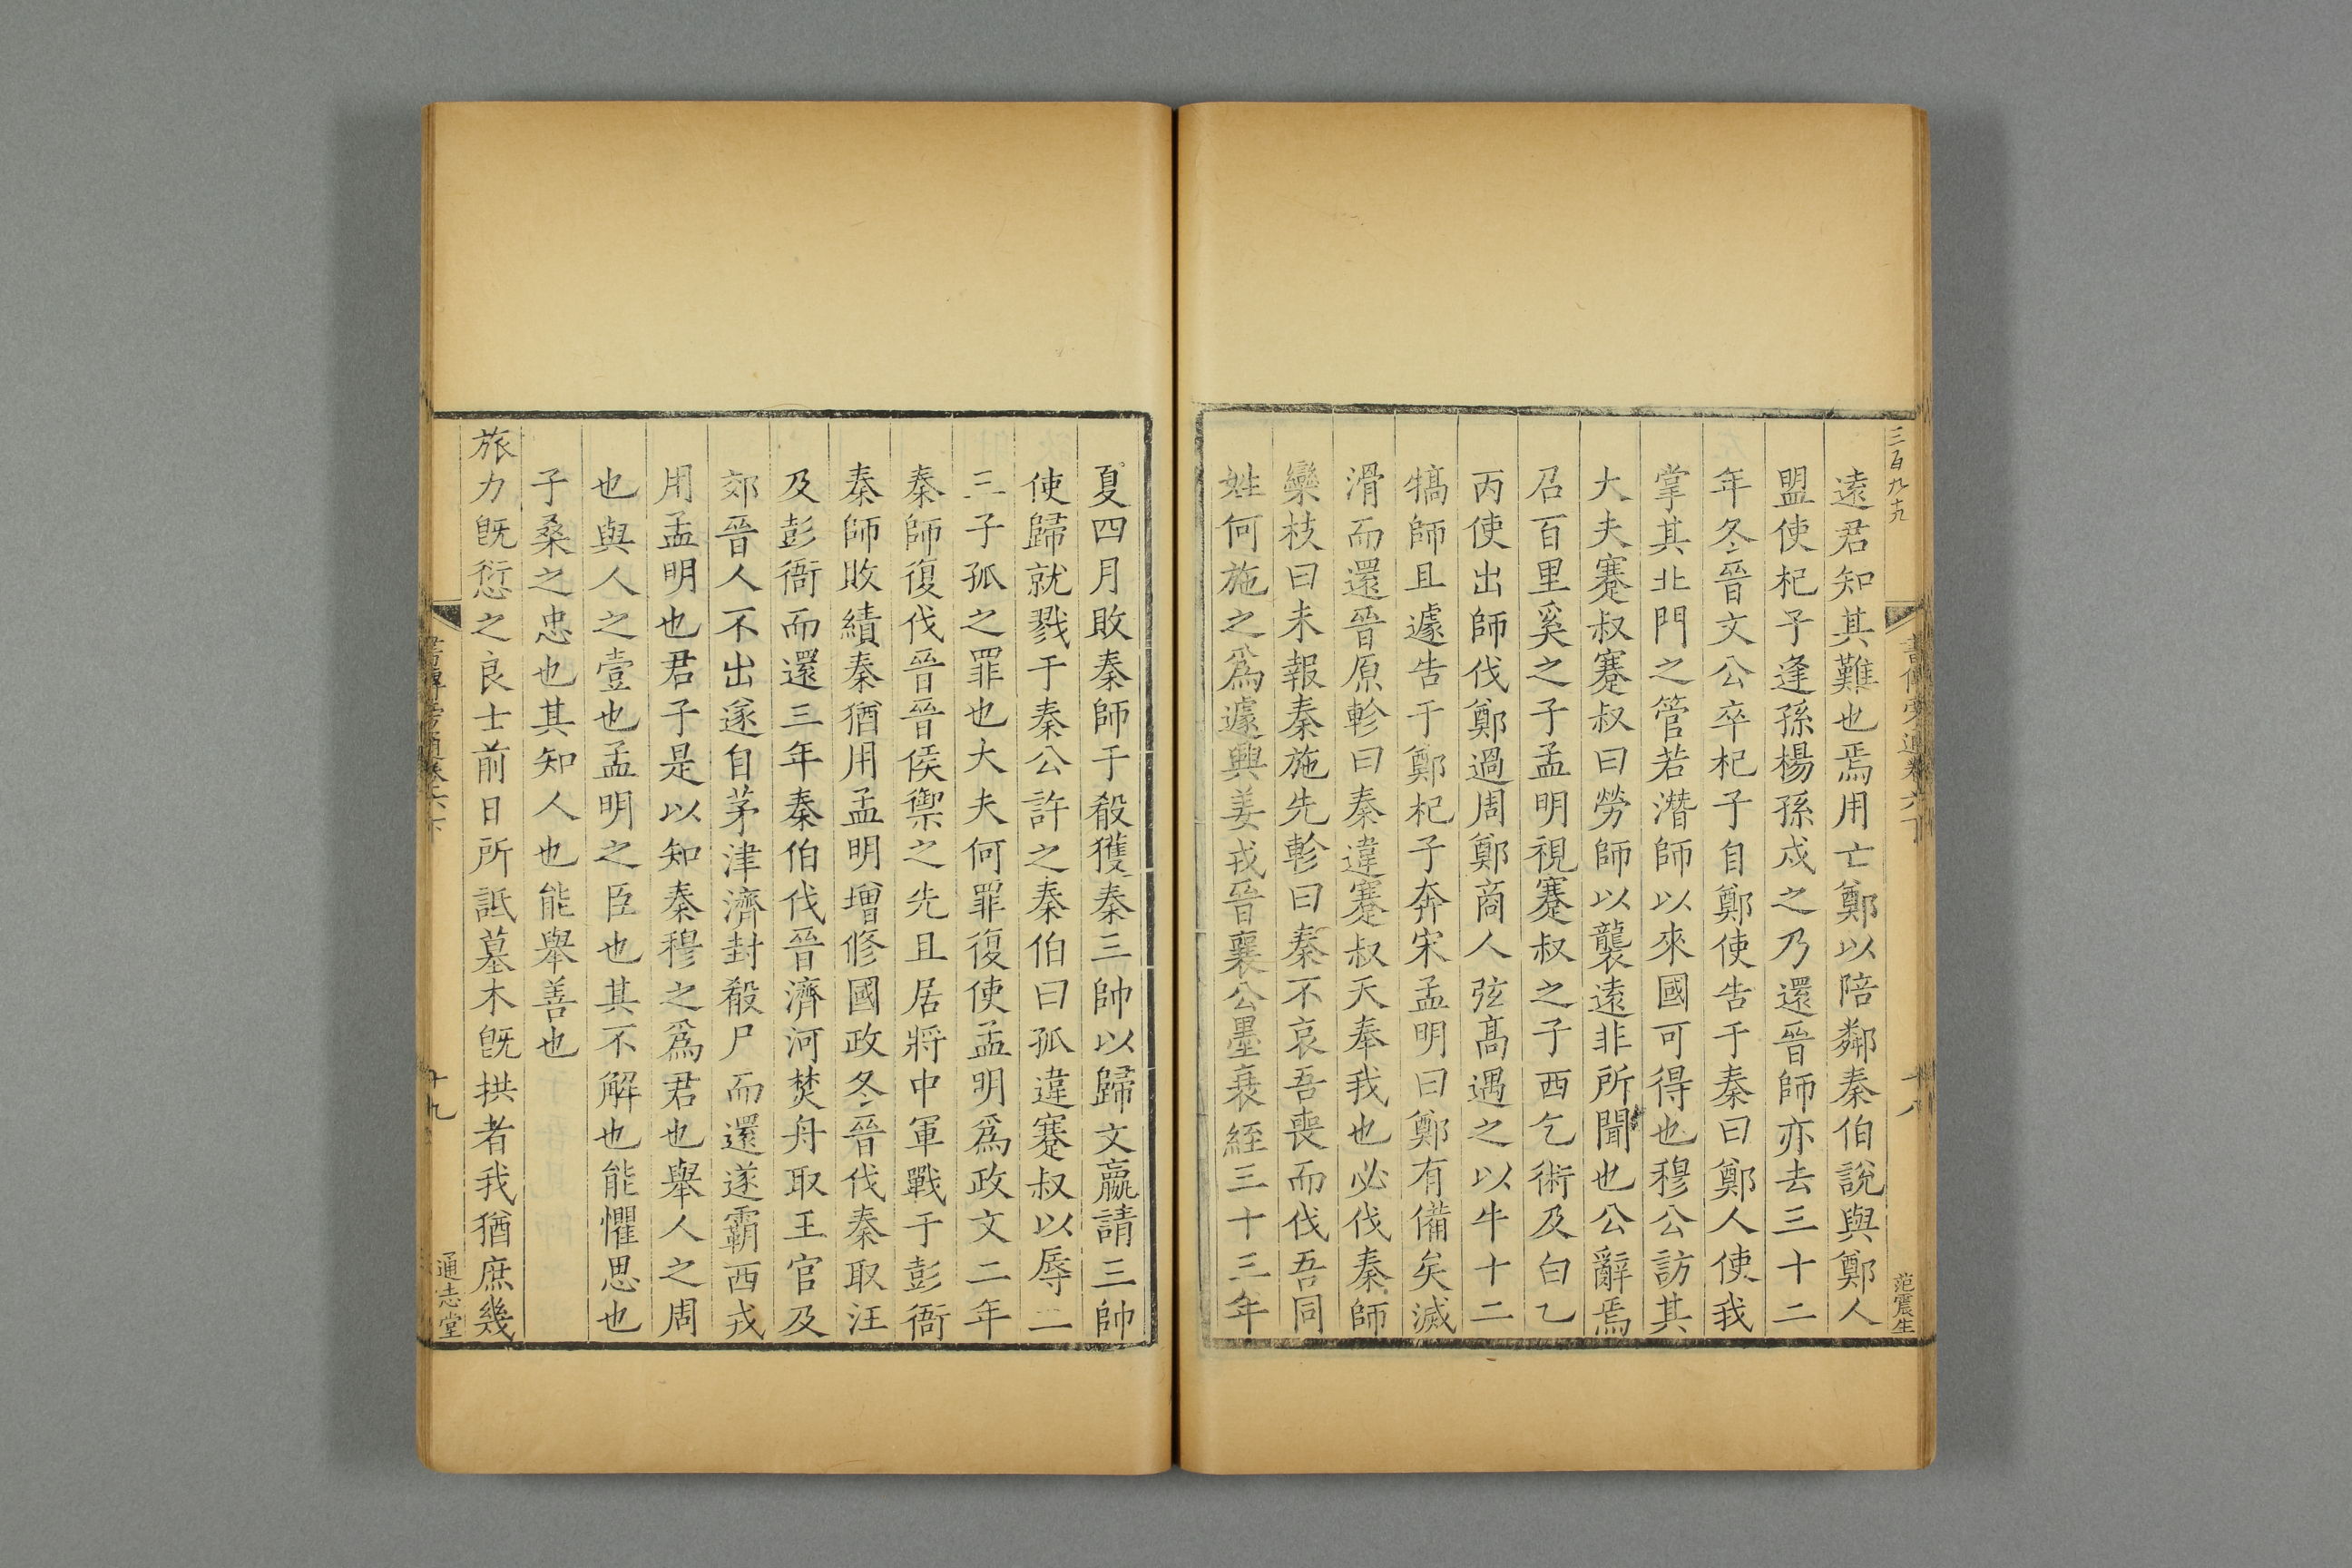 三百九十九
書傳旁通卷六下
十八
范震生
遠君知其難也焉用亡鄭以陪鄰秦伯說與鄭人
盟使杞子逢孫楊孫戍之乃還晉師亦去三十二
年冬晉文公卒杞子自鄭使告于秦曰鄭人使我
掌其北門之管若潛師以來國可得也穆公訪其
大夫蹇叔蹇叔曰勞師以襲遠非所聞也公辭焉
召百里奚之子孟明視蹇叔之子西乞術及白乙
丙使出師伐鄭過周鄭商人弦高遇之以牛十二
犒師且遽告于鄭杞子奔宋孟明曰鄭有備矣滅
滑而還晉原軫曰秦違蹇叔天奉我也必伐秦師
欒枝曰未報秦施先軫曰秦不哀吾喪而伐吾同
姓何施之爲遽興姜戎晉襄公墨衰絰三十三年
夏四月敗秦師于殽獲秦三帥以歸文嬴請三帥
使歸就戮于秦公許之秦伯曰孤違蹇叔以辱二
三子孤之罪也大夫何罪復使孟明爲政文二年
秦師復伐晉晉侯禦之先且居將中軍戰于彭衙
秦師敗績秦猶用孟明增修國政冬晉伐秦取汪
及彭衙而還三年秦伯伐晉濟河焚舟取王官及
郊晉人不出遂自茅津濟封殽尸而還遂霸西戎
用孟明也君子是以知秦穆之爲君也舉人之周
也與人之壹也孟明之臣也其不解也能懼思也
子桑之忠也其知人也能舉善也
旅力旣愆之良士前日所詆墓木旣拱者我猶庶幾
書傳旁通卷六下
十九
通志堂